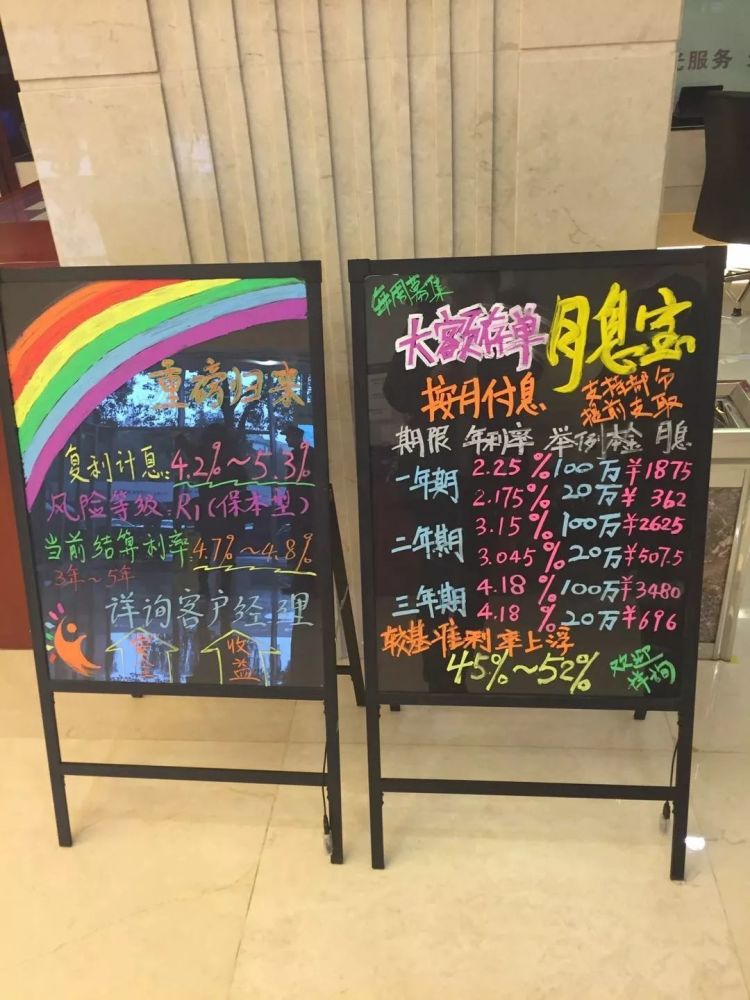 光服务
重磅归来
复利计息:4.2%~5.3%
风险等级:R1(保本型)
当前结算利率:4.7%~4.8%
3年~5年
详询客户经理
安全 收益
年周募集
大额存单 月息宝
按月付息
支持部分
提前支取
期限 年利率 举例本金 月息
一年期 2.25% 100万 ¥1875
2.175% 20万 ¥362
二年期 3.15% 100万 ¥2625
3.045% 20万 ¥507.5
三年期 4.18% 100万 ¥3480
4.18% 20万 ¥696
较基准利率上浮
45%~52%
欢迎
详询